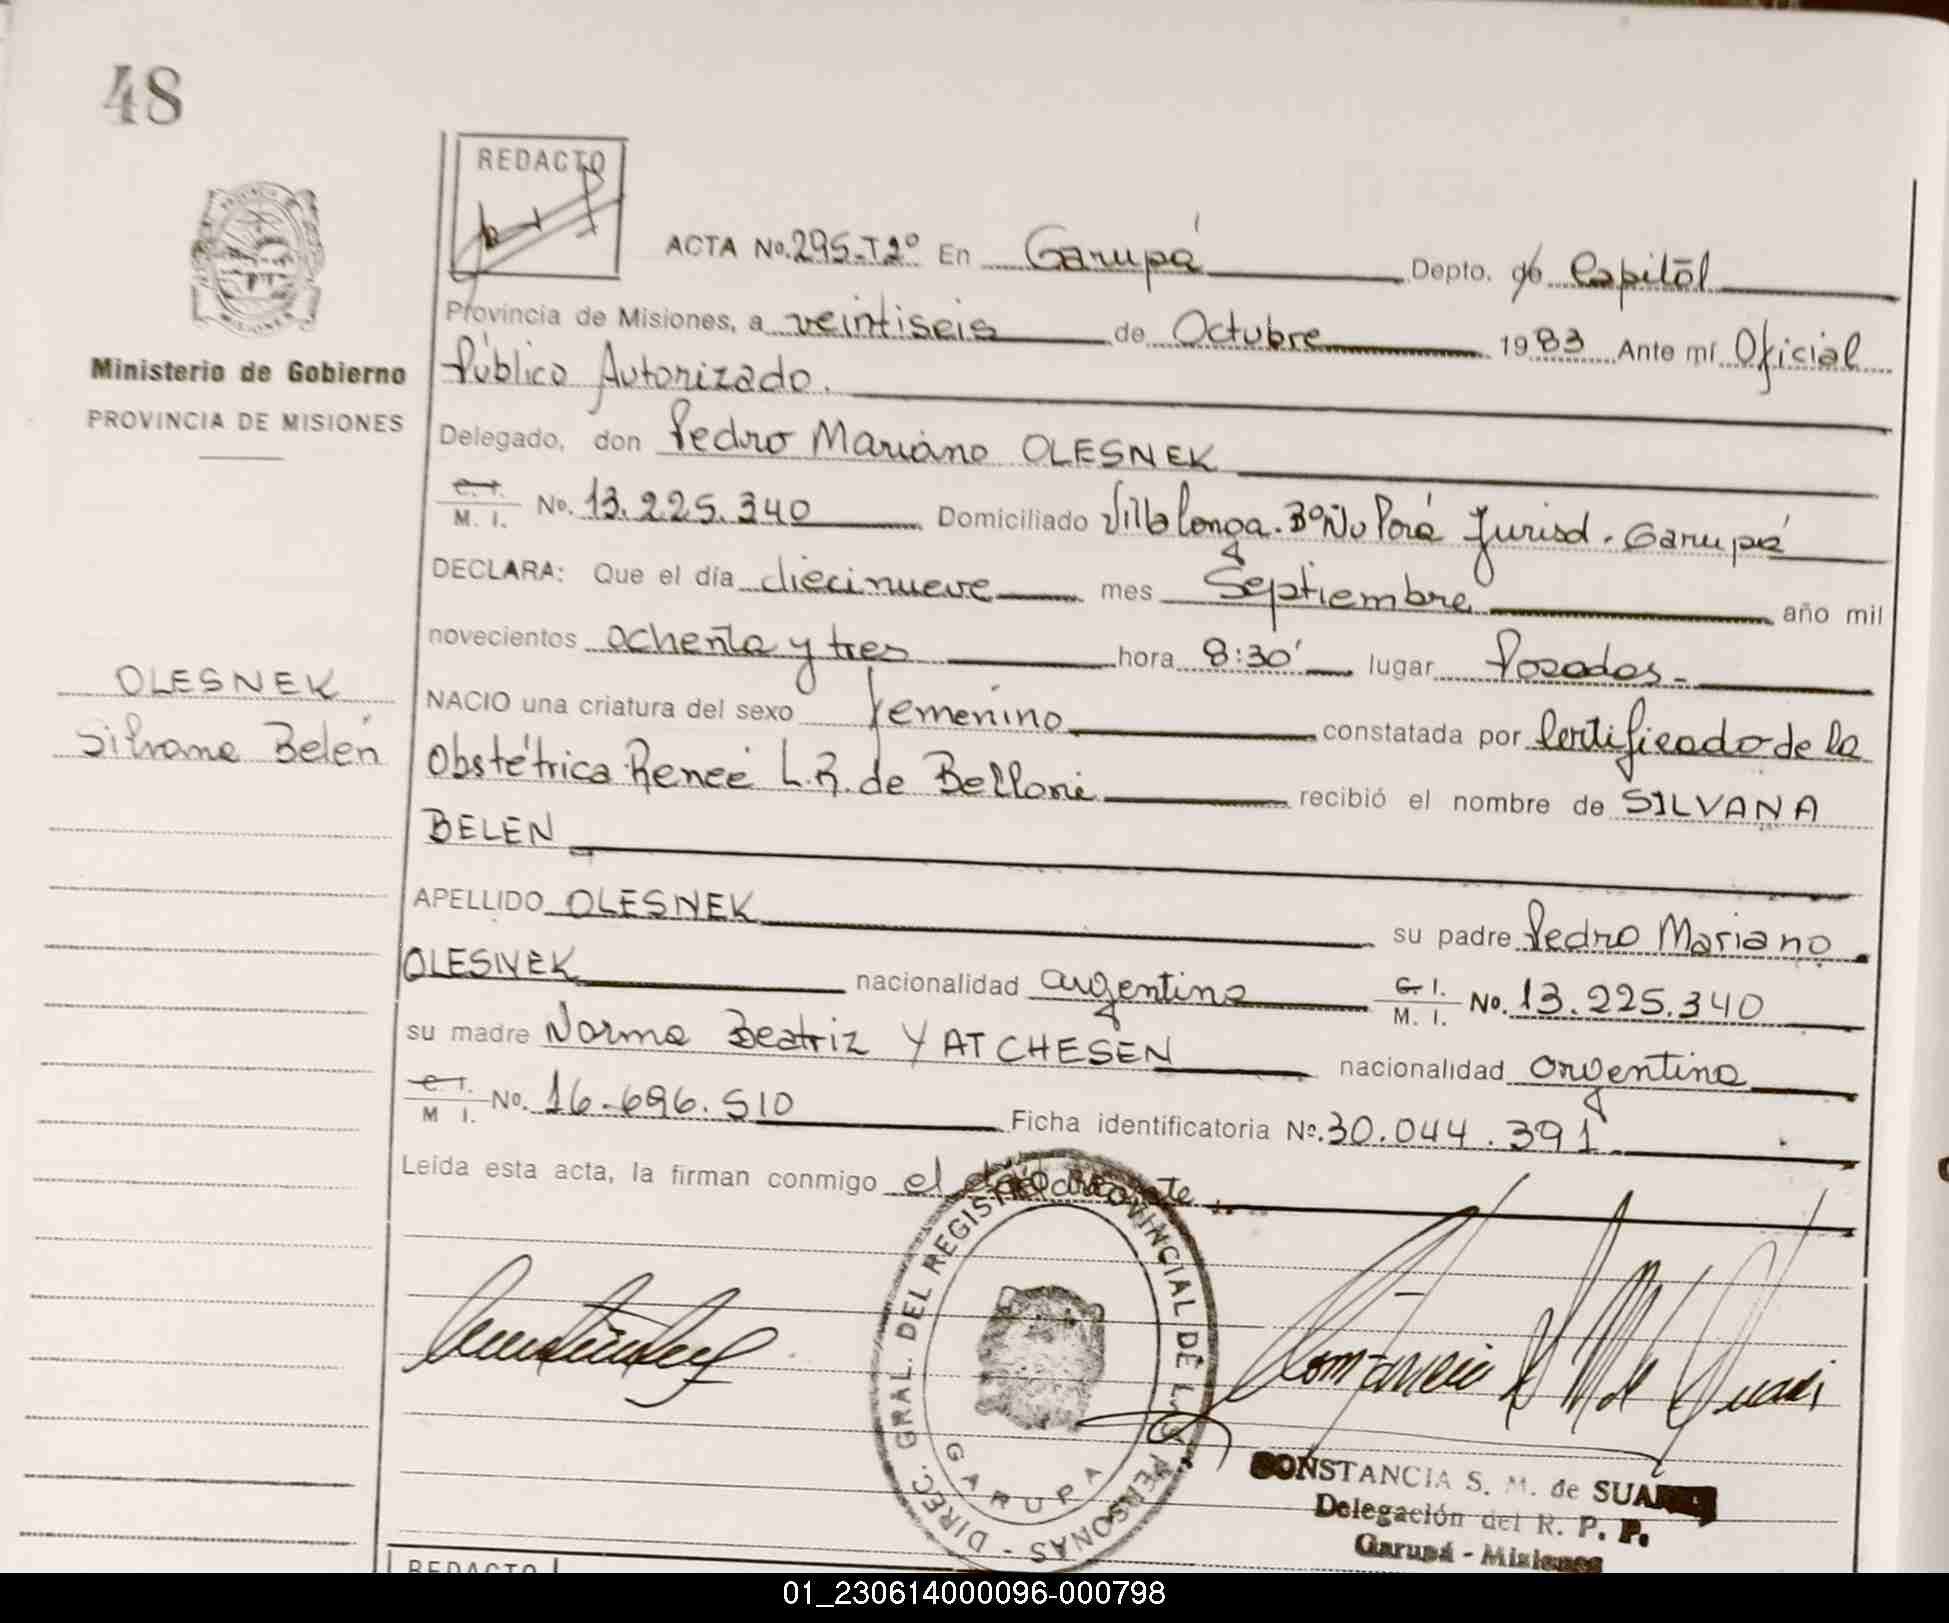 48
REDACTO
ACTA No. 295-T2º En Garupá Depto. de Capital
Provincia de Misiones, a veintiseis de Octubre 1983 Ante mí Oficial
Público Autorizado.
Delegado, don Pedro Mariano OLESNEK
C. I. M. I. No. 13.225.340 Domiciliado Villalonga. Bº Ñu Porá Jurisd. Garupá
DECLARA: Que el día diecinueve mes Septiembre año mil
novecientos ochenta y tres hora 8:30' lugar Posadas.
NACIO una criatura del sexo femenino constatada por Certificado de la
Obstétrica Reneé L.R. de Belloni recibió el nombre de SILVANA
BELEN
APELLIDO OLESNEK su padre Pedro Mariano
OLESNEK nacionalidad argentina C. I. M. I. No. 13.225.340
su madre Norma Beatriz YATCHESEN nacionalidad argentina
C. I. M I. No. 16.696.510 Ficha identificatoria No. 30.044.391
Leída esta acta, la firman conmigo el
Ministerio de Gobierno
PROVINCIA DE MISIONES
OLESNEK
Silvana Belén
DIREC. GRAL. DEL REGISTRO PROVINCIAL DE LAS PERSONAS -
GARUPA
CONSTANCIA S. M. de SUAREZ
Delegación del R. P. P.
Garupá - Misiones
REDACTO
01_230614000096-000798